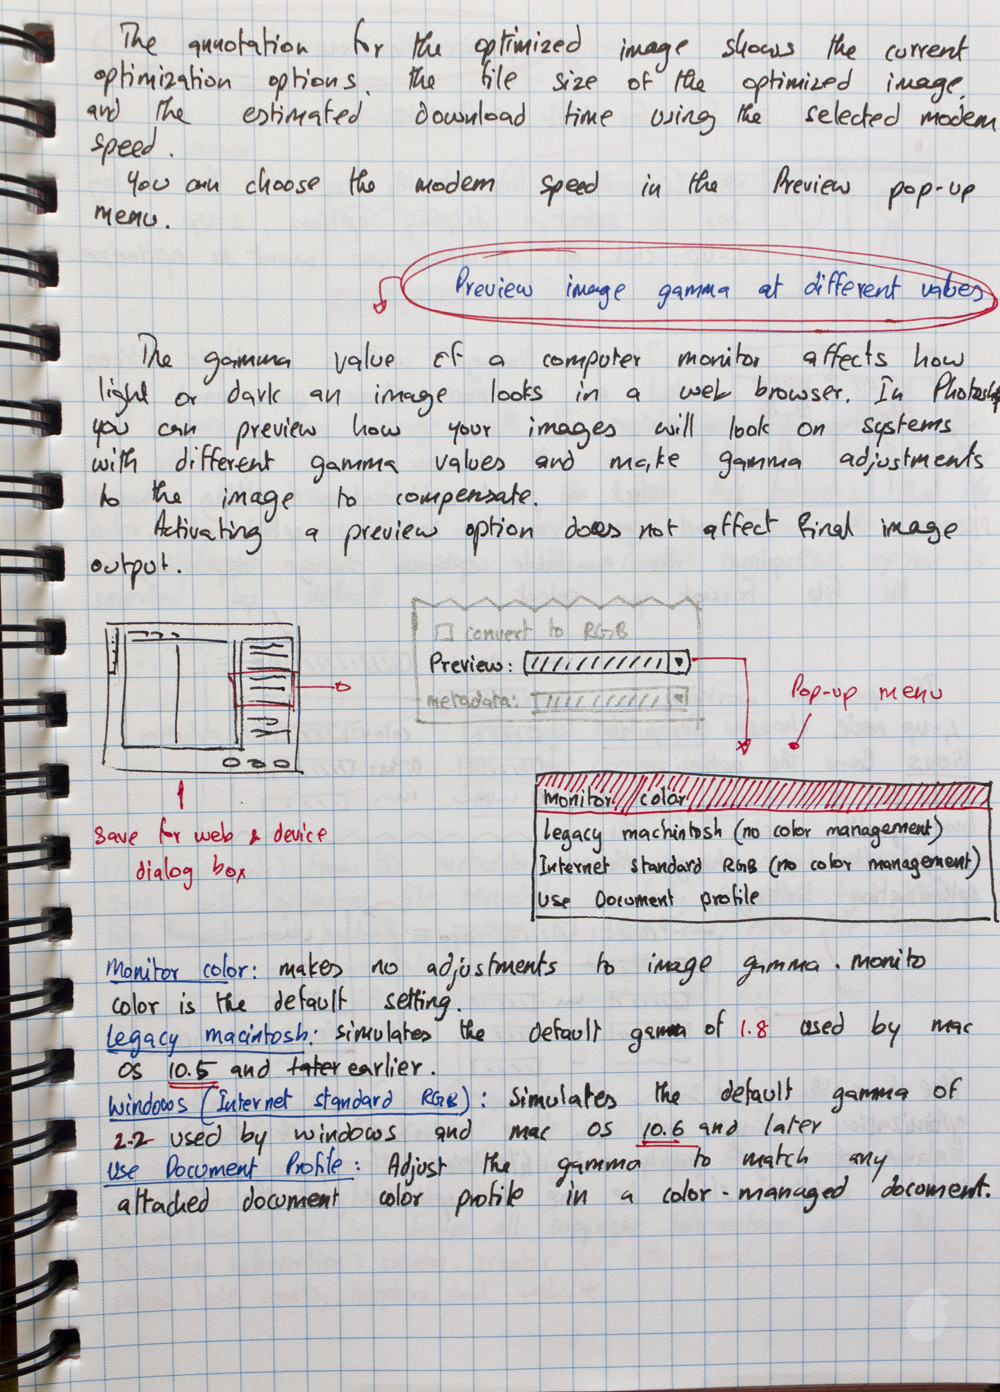 The annotation for the optimized image shows the current
optimization options, the file size of the optimized image,
and the estimated download time using the selected modem
speed.
You can choose the modem speed in the Preview pop-up
menu.
Preview image gamma at different values
The gamma value of a computer monitor affects how
light or dark an image looks in a web browser. In Photoshop
you can preview how your images will look on systems
with different gamma values and make gamma adjustments
to the image to compensate.
Activating a preview option does not affect final image
output.
convert to RGB
Preview:
metadata:
Pop-up menu
monitor color
Legacy machintosh (no color management)
Internet Standard RGB (no color management)
Use Document profile
Save for web & device
dialog box
Monitor color: makes no adjustments to image gamma. monito
color is the default setting.
Legacy macintosh: simulates the default gamma of 1.8 used by mac
OS 10.5 and later earlier.
Windows (Internet standard RGB): Simulates the default gamma of
2.2 used by windows and mac OS 10.6 and later
Use Document Profile: Adjust the gamma to match any
attached document color profile in a color-managed document.